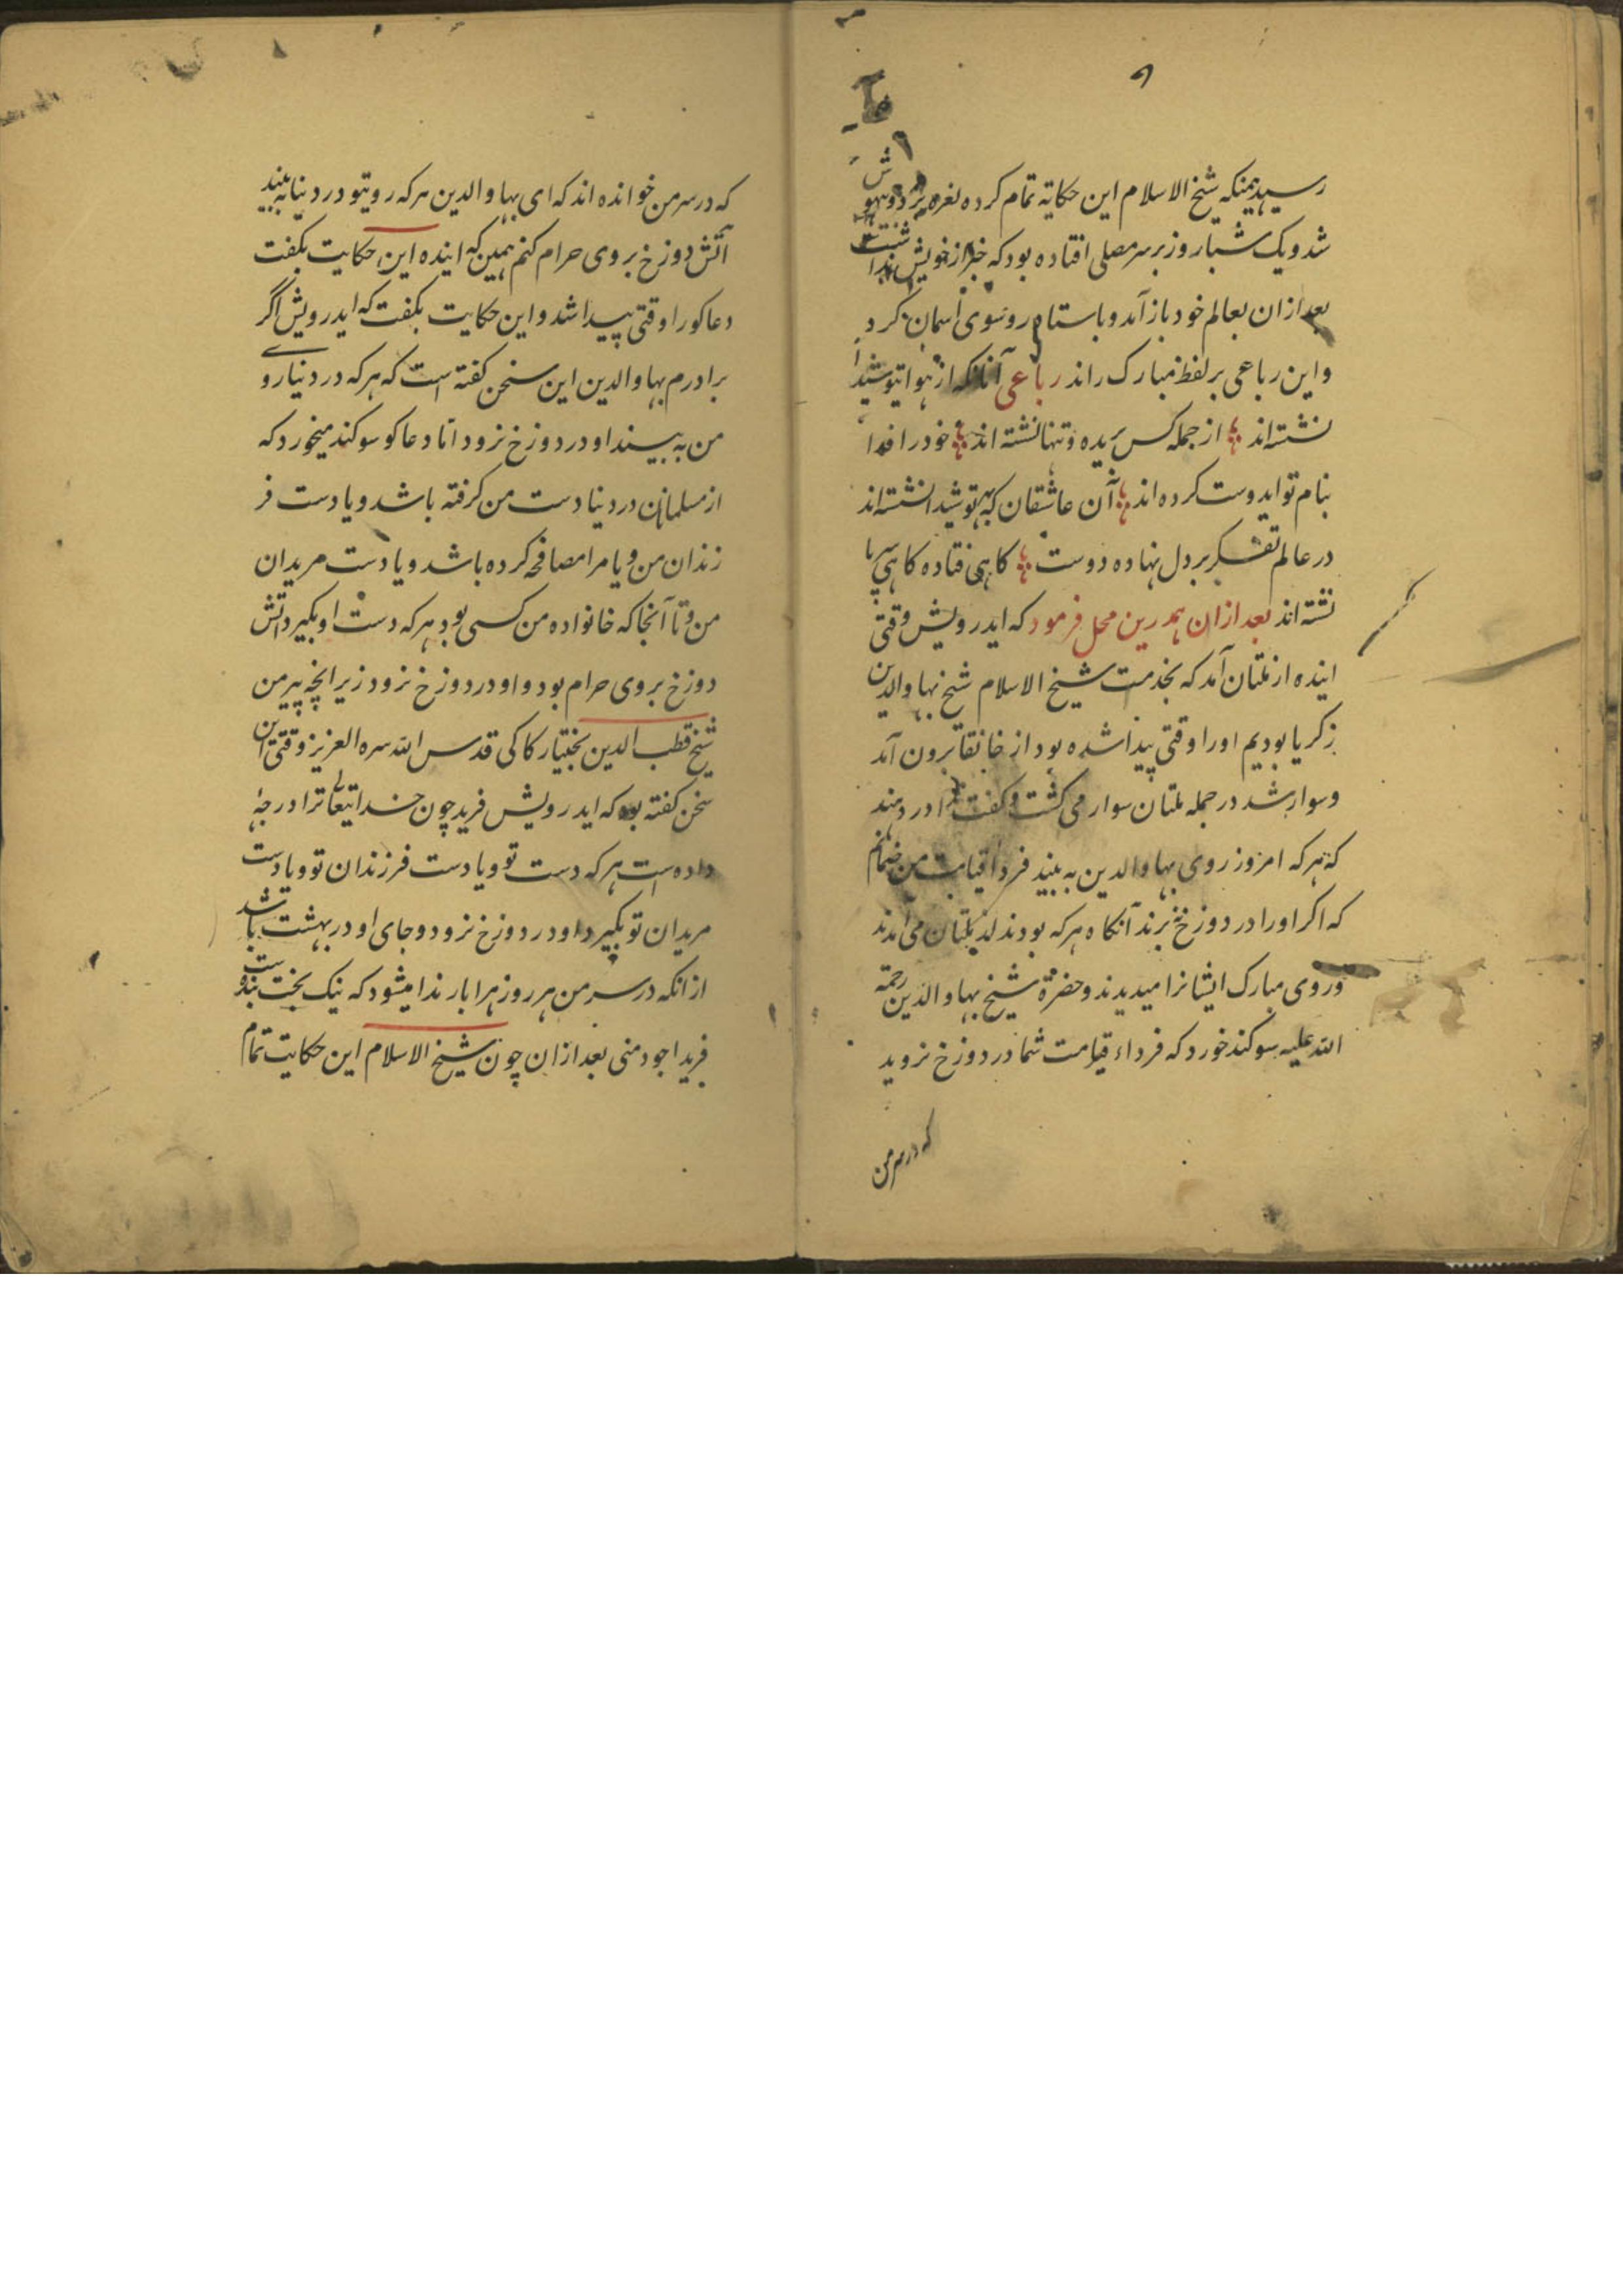 ۹
رسید همینکه شیخ الاسلام این حکایة تمام کرده نعره بزد و بیهوش
شد و یک شبا روز بر سر مصلی افتاده بود که خبر از خویش نداشت
بعد ازان بعالم خود باز آمد و باستاد و روسوی آسمان کرد
و این رباعی بر لفظ مبارک راند رباعی آنانکه از هوا
نشسته اند از جمله کس بریده و تنها نشسته اند خود را فدا
بنام تو ایدوست کرده اند آن عاشقان که بهر تو شیدا نشسته اند
در عالم تفکر بر دل نهاده دوست کاهی فتاده کاهی بپا
نشسته اند بعد ازان همدرین محل فرمود که ایدرویش وقتی
اینده از ملتان آمد که بخدمت شیخ الاسلام شیخ بهاوالدین
زکریا بودیم او را وقتی پیدا شده بود از خانقا برون آمد
و سوار شد در جمله ملتان سوار می کشت و کفت در دهند
که هر که امروز روی بهاوالدین به بیند فردا قیامت من ضمانم
که اکر او را در دوزخ برند آنکاه هرکه بودند در ملتان می آمدند
و روی مبارک ایشانرا میدیدند و حضرة شیخ بهاوالدین رحمة
الله علیه سوکند خورد که فرداء قیامت شما در دوزخ نروید
که در سر من
که در سر من خوانده اند که ای بهاوالدین هر که رویتو در دنیا به بیند
آتش دوزخ بروی حرام کنم همین که اینده این حکایت بکفت
دعاکو را وقتی پیدا شد و این حکایت بکفت که ایدرویش اگر
برادرم بهاوالدین این سخن کفته است که هر که در دنیا روے
من به بیند او در دوزخ نرود اما دعاکو سوکند میخورد که
از مسلمانان در دنیا دست من کرفته باشد و یا دست فر
زندان من و یا مرا مصافحه کرده باشد و یا دست مریدان
من و تا آنجا که خانواده من کسی بود هر که دست او بکیرد آتش
دوزخ بروی حرام بود و او در دوزخ نرود زیرانچه پیر من
شیخ قطب الدین بختیار کاکی قدس الله سره العزیز وقتی این
سخن کفته بود که ایدرویش فرید چون خدایتعالے ترا درجهٔ
داده است هر که دست تو و یا دست فرزندان تو و یا دست
مریدان تو بکیرد او در دوزخ نرود و جای او در بهشت باشد
ازانکه در سر من هر روز هزار بار ندا میشود که نیک بخت بنده است
فرید اجودهنی بعد ازان چون شیخ الاسلام این حکایت تمام